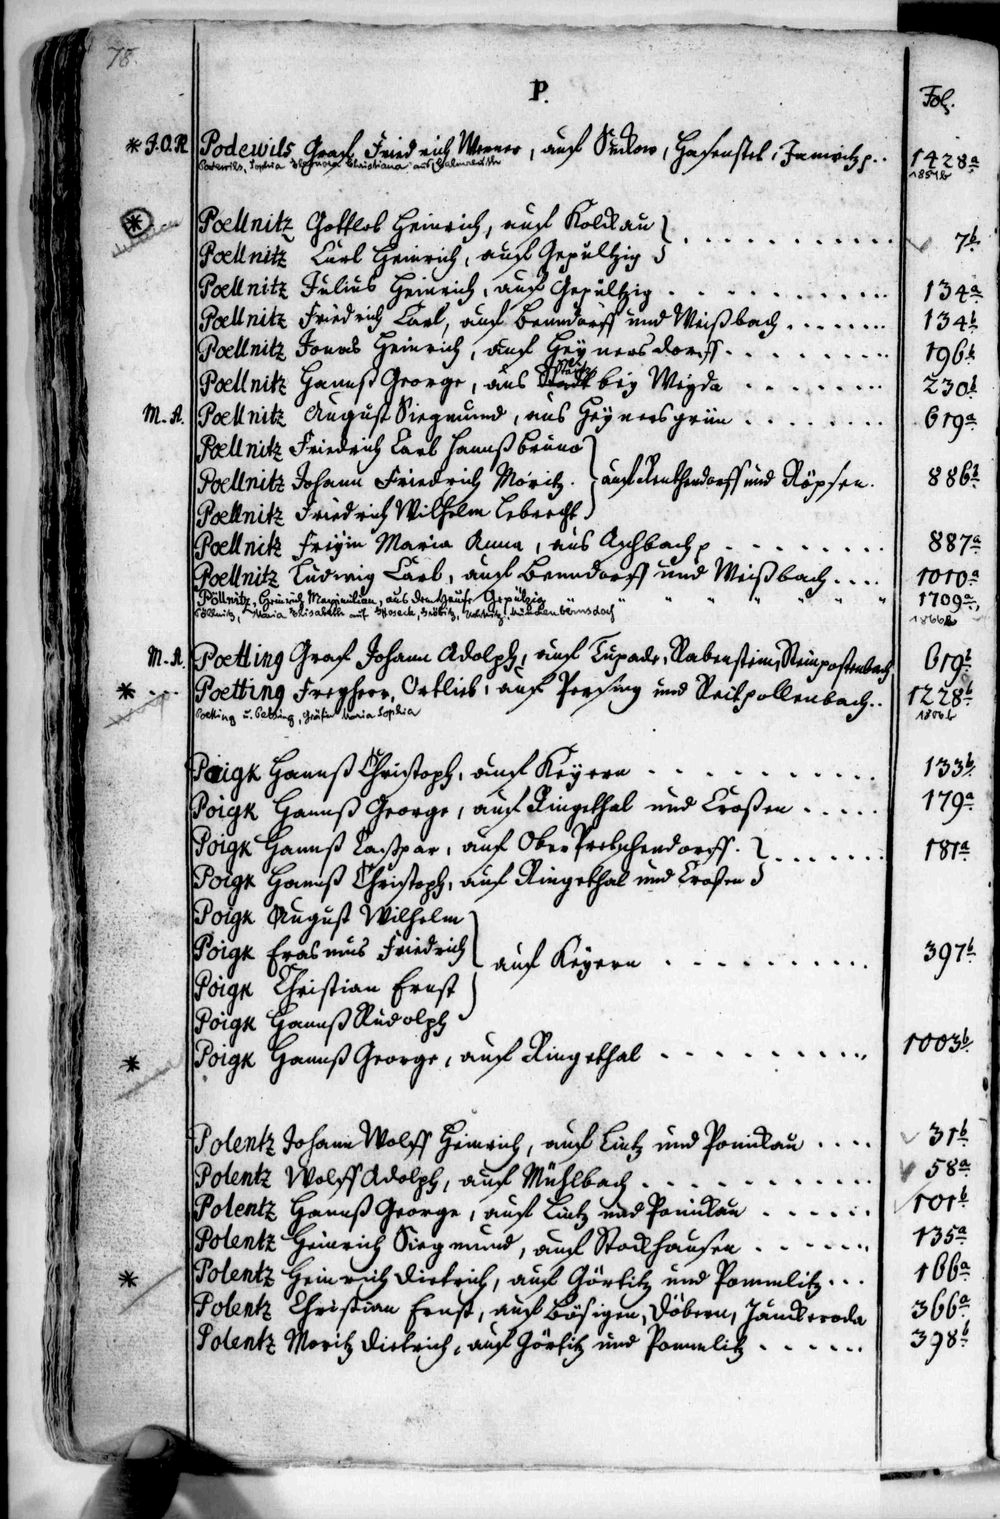 78.
P.
Fol.
* J.O.R. Podewils Graf Friedrich Werner, auf Suckow, Hasenfier, Jannewitz p.. 1428a
Podewils, Sophia Christiana auf 1854b
* Poellnitz Gottlob Heinrich, auf Kolckau
Poellnitz Carl Heinrich, auf Gepültzig 7b
Poellnitz Julius Heinrich, auf Gepültzig 134a
Poellnitz Friedrich Carl, auf Benndorff und Weißbach 134b
Poellnitz Jonas Heinrich, auf Heynersdorff 196b
Poellnitz Hannß George, aus bey Weyda 230b
M.A. Poellnitz August Siegmund, aus Heynersgrün 619a
Poellnitz Friedrich Carl Hannß Bruno
Poellnitz Johann Friedrich Moritz. auf Renthendorff und Röpsen. 886b
Poellnitz Friedrich Wilhelm Lebrecht
Poellnitz Freyin Maria Anna, aus Aschbach p 887a
Poellnitz Ludwig Carl, auf Benndorff und Weißbach 1010a
Pöllnitz, Heinrich Maximilian, aus dem Hause Gepülzig 1709a
Pöllnitz, Maria Elisabeth auf Münchenbernsdorf 1866b
M.A. Poetting Graf Johann Adolph, auf Tupadl, Rabenstein, Steinpostenbach 619b
* Poetting Freyherr, Ortlieb, auf Persing und Reitpollenbach.. 1228b
Poetting u. Petting, Gräfin Maria Sophia
Poigk Hannß Christoph, auf Keyern 133b
Poigk Hannß George, auf Ringethal und Croßen 179a
Poigk Hannß Caspar, auf Ober Pretschendorff.
Poigk Hannß Christoph, auf Ringethal und Croßen 181a
Poigk August Wilhelm
Poigk Erasmus Friedrich auf Keyern 397b
Poigk Christian Ernst
Poigk Hannß Rudolph
* Poigk Hannß George, auf Ringethal 1003b
Polentz Johann Wolff Heinrich, auf Lintz und Ponickau 31b
Polentz Wolff Adolph, auf Mühlbach 58a
Polentz Hannß George, auf Lintz und Ponickau 101b
Polentz Heinrich Siegmund, auf Stockhausen 135a
* Polentz Heinrich Dietrich, auf Görlitz und Pommlitz 166a
Polentz Christian Ernst, auf Bösigen, Döbern, Jänckeroda 366a
Polentz Moritz Dietrich, auf Görlitz und Pommlitz 398b